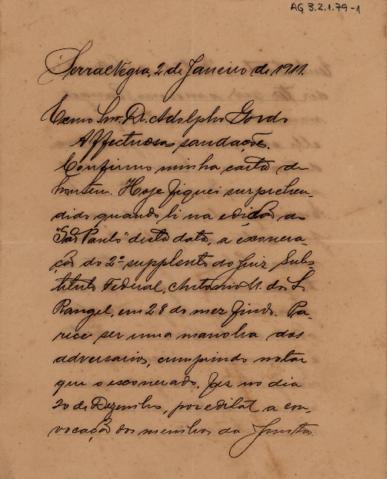 AG 3.2.1.79-1
Serra Negra, 2 de Janeiro de 1911.
Exmo Snr. Dr. Adolpho Gordo
Affectuosas saudações.
Confirmo minha carta de
hontem. Hoje fiquei surprehen-
dido quando li na edição do
"São Paulo" desta data, a exonera-
ção do 2º supplente do Juiz Subs-
tituto Federal, Antonio M. dos S.
Rangel, em 28 do mez findo. Pa-
rece ser uma manobra dos
adversarios, cumprindo notar
que o exonerado, fez no dia
20 de Dezembro, por edital a con-
vocação dos membros da Junta